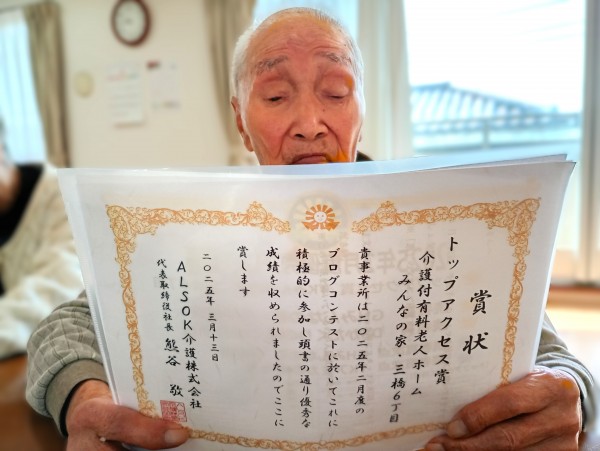 賞状
トップアクセス賞
介護付有料老人ホーム
みんなの家・三橋6丁目
貴事業所は二〇二五年二月度の
ブログコンテストに於いてこれに
積極的に参加し頭書の通り優秀な
成績を収められましたのでここに
賞します
二〇二五年 三月十三日
ALSOK介護株式会社
代表取締役社長 熊谷 敬